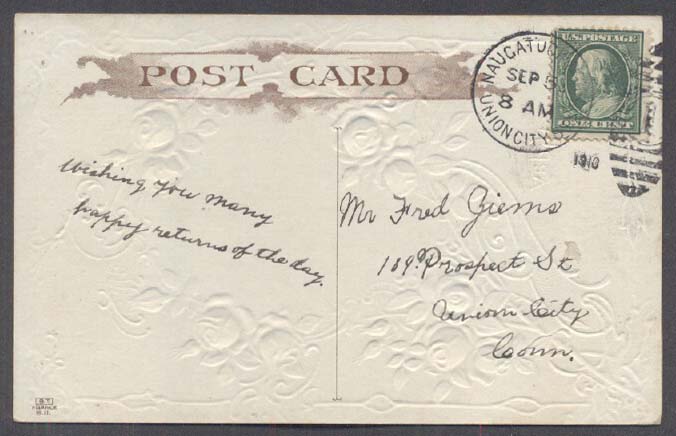 POST CARD
NAUGATU
SEP 5
8 AM
UNION CITY
1910
U.S. POSTAGE
ONE CENT
Wishing you many
happy returns of the day.
Mr Fred Ziems
189 Prospect St
Union City
Conn.